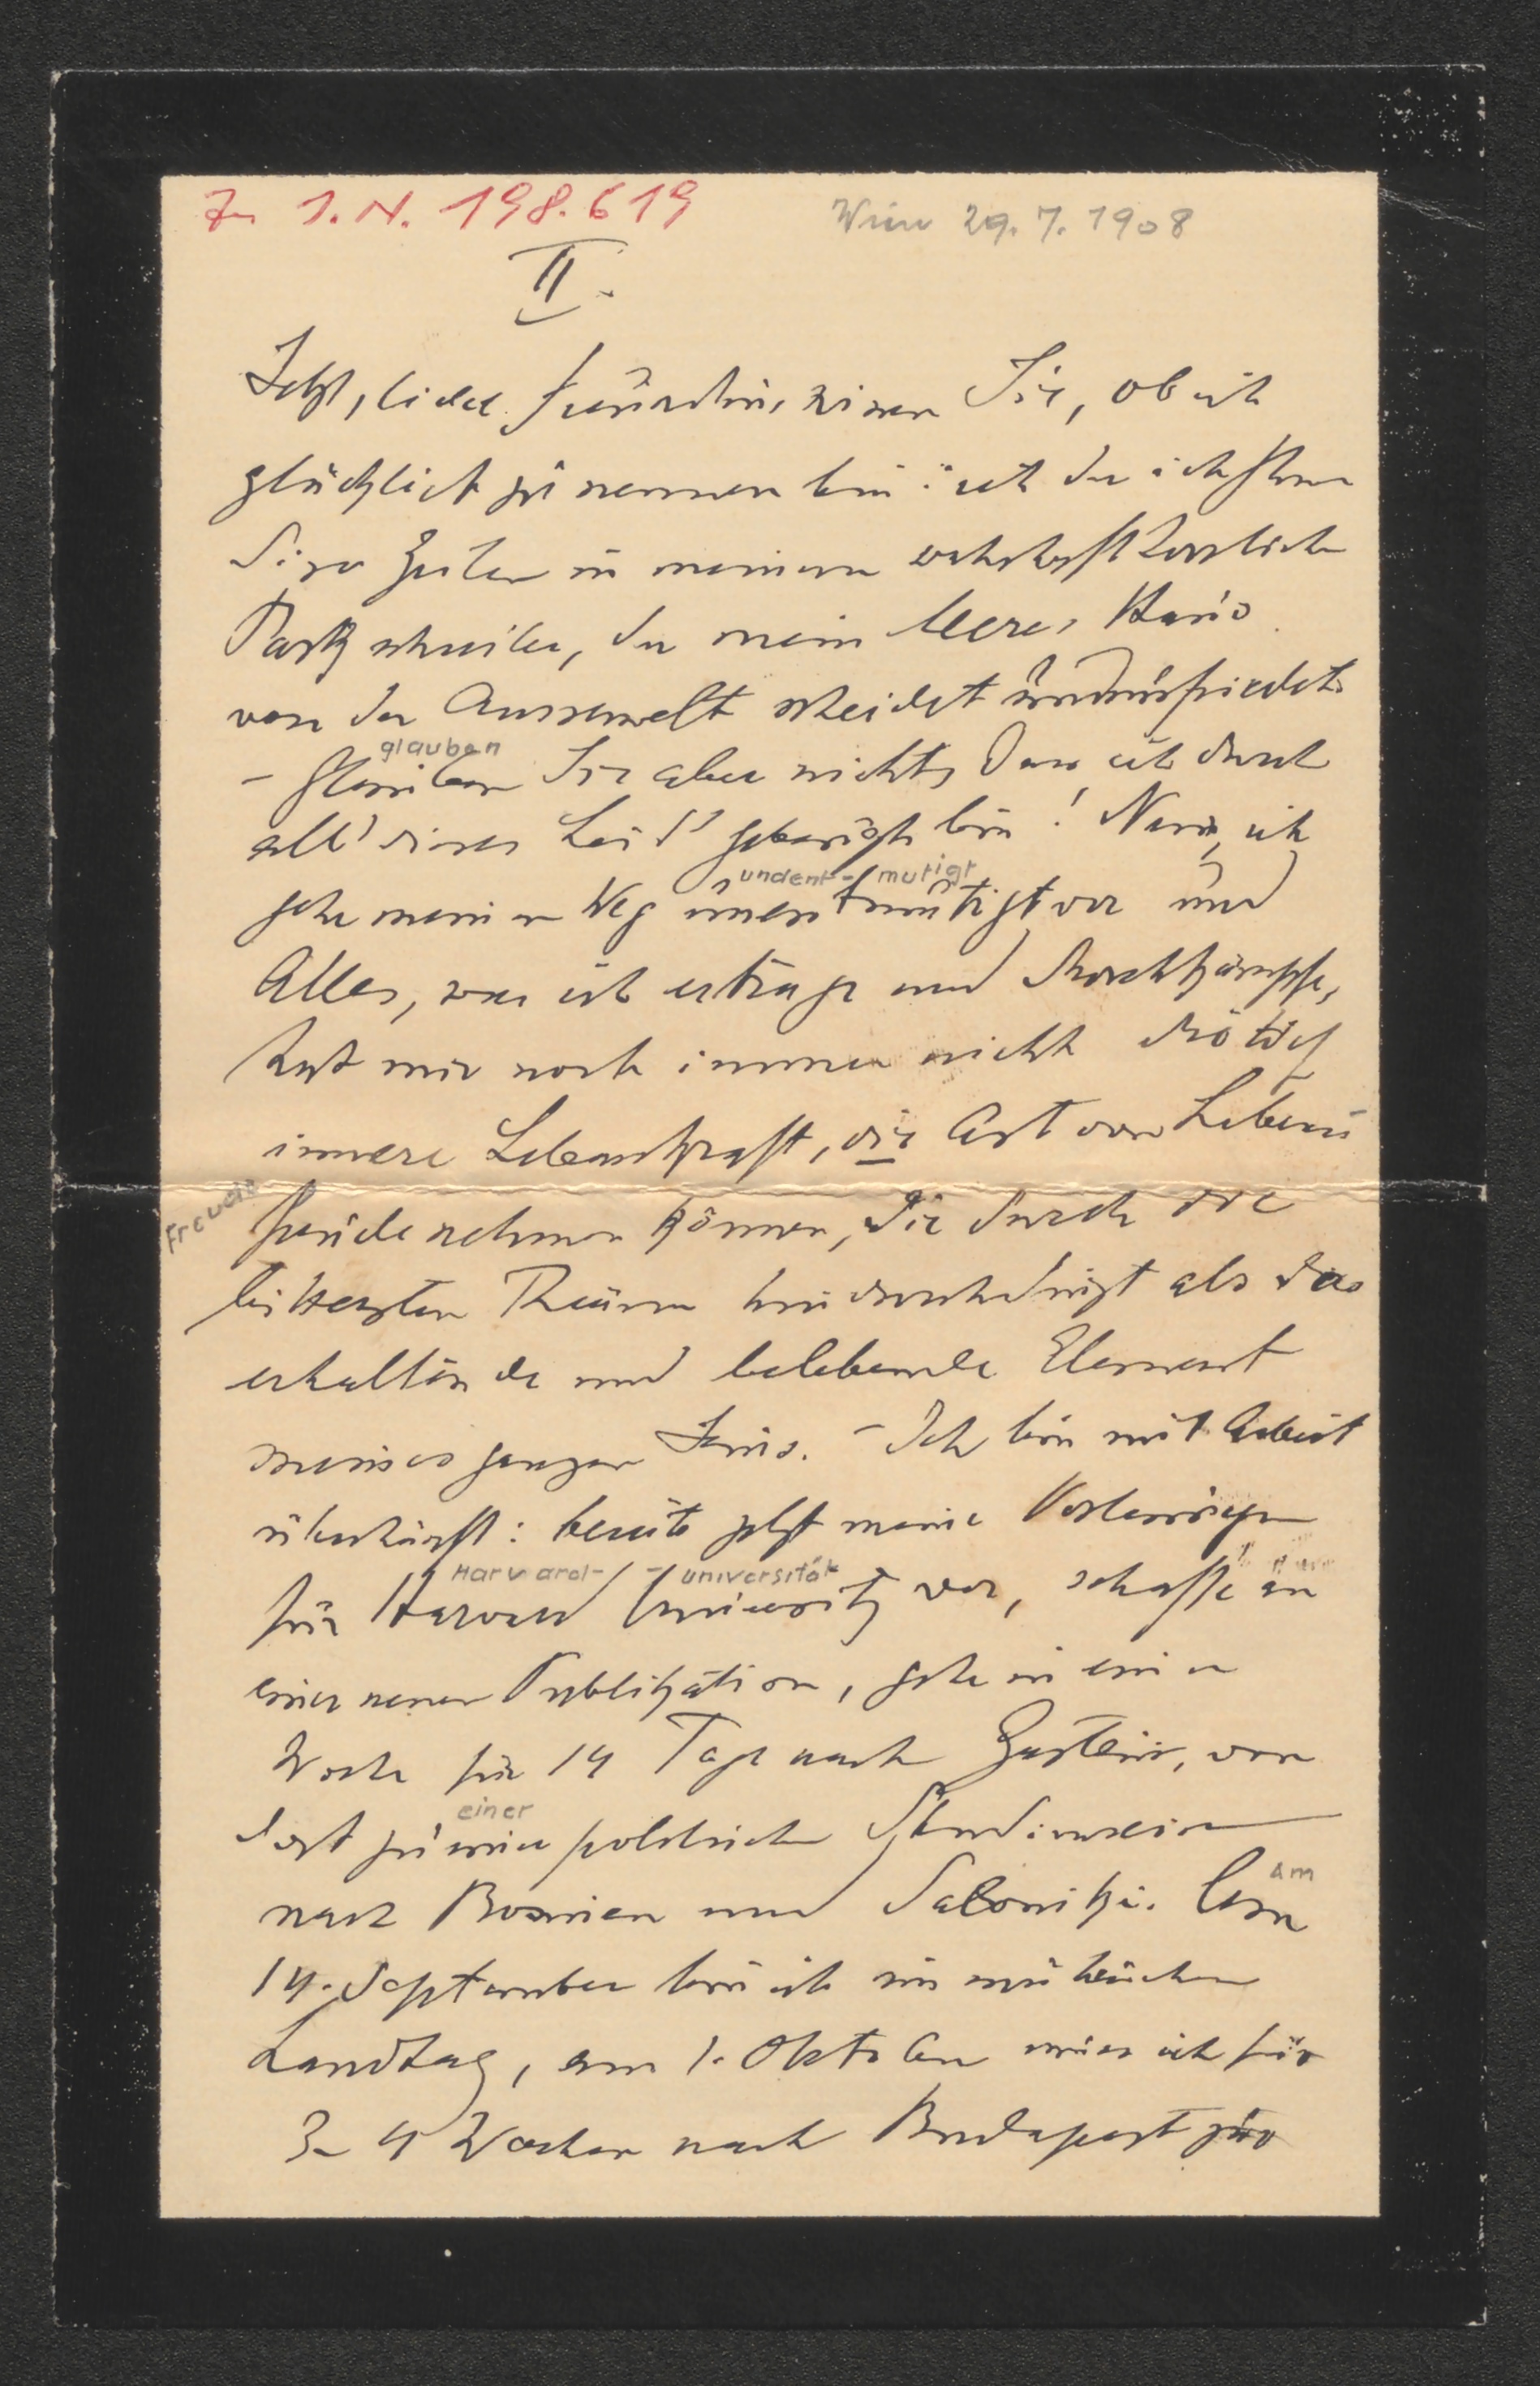 Zu I.N. 198.619
Wien 29.7.1908
II.
Jetzt, liebe Freundin, wissen Sie, ob ich
glücklich zu nennen bin: ich der ich Ihnen
diese Zeilen in meinem wahrhaft herrlichen
Park schreibe, der mein leeres Haus
von der Aussenwelt scheidet und umfriedet.
glauben
– Glauben Sie aber nicht, dass ich durch
all' dieses Leid gebeugt bin! Nein, ich
undent- mutigt
gehe meinen Weg unentmutigt vor und
Alles, was ich ertrage und durchkämpfe,
hat mir noch immer nicht die tief
innere Lebenskraft, die Art von Lebens
Freude
freude nehmen können, die durch die
bittersten Thränen hindurchdringt als das
erhaltende und belebende Element
meines ganzen Seins. – Ich bin mit Arbeit
überhäuft: bereite jetzt meine Vorlesungen
Harvard- - universität
für Harvard University vor, schaffe an
einer neuen Publikation, gehe in einer
Woche für 14 Tage nach Gastein, von
einer
dort zu einer politischen Studienreise
nach Bosnien und Saloniki. Am
am
14. September bin ich im mährischen
Landtag, am 1. Oktober muss ich für
3–4 Wochen nach Budapest zur